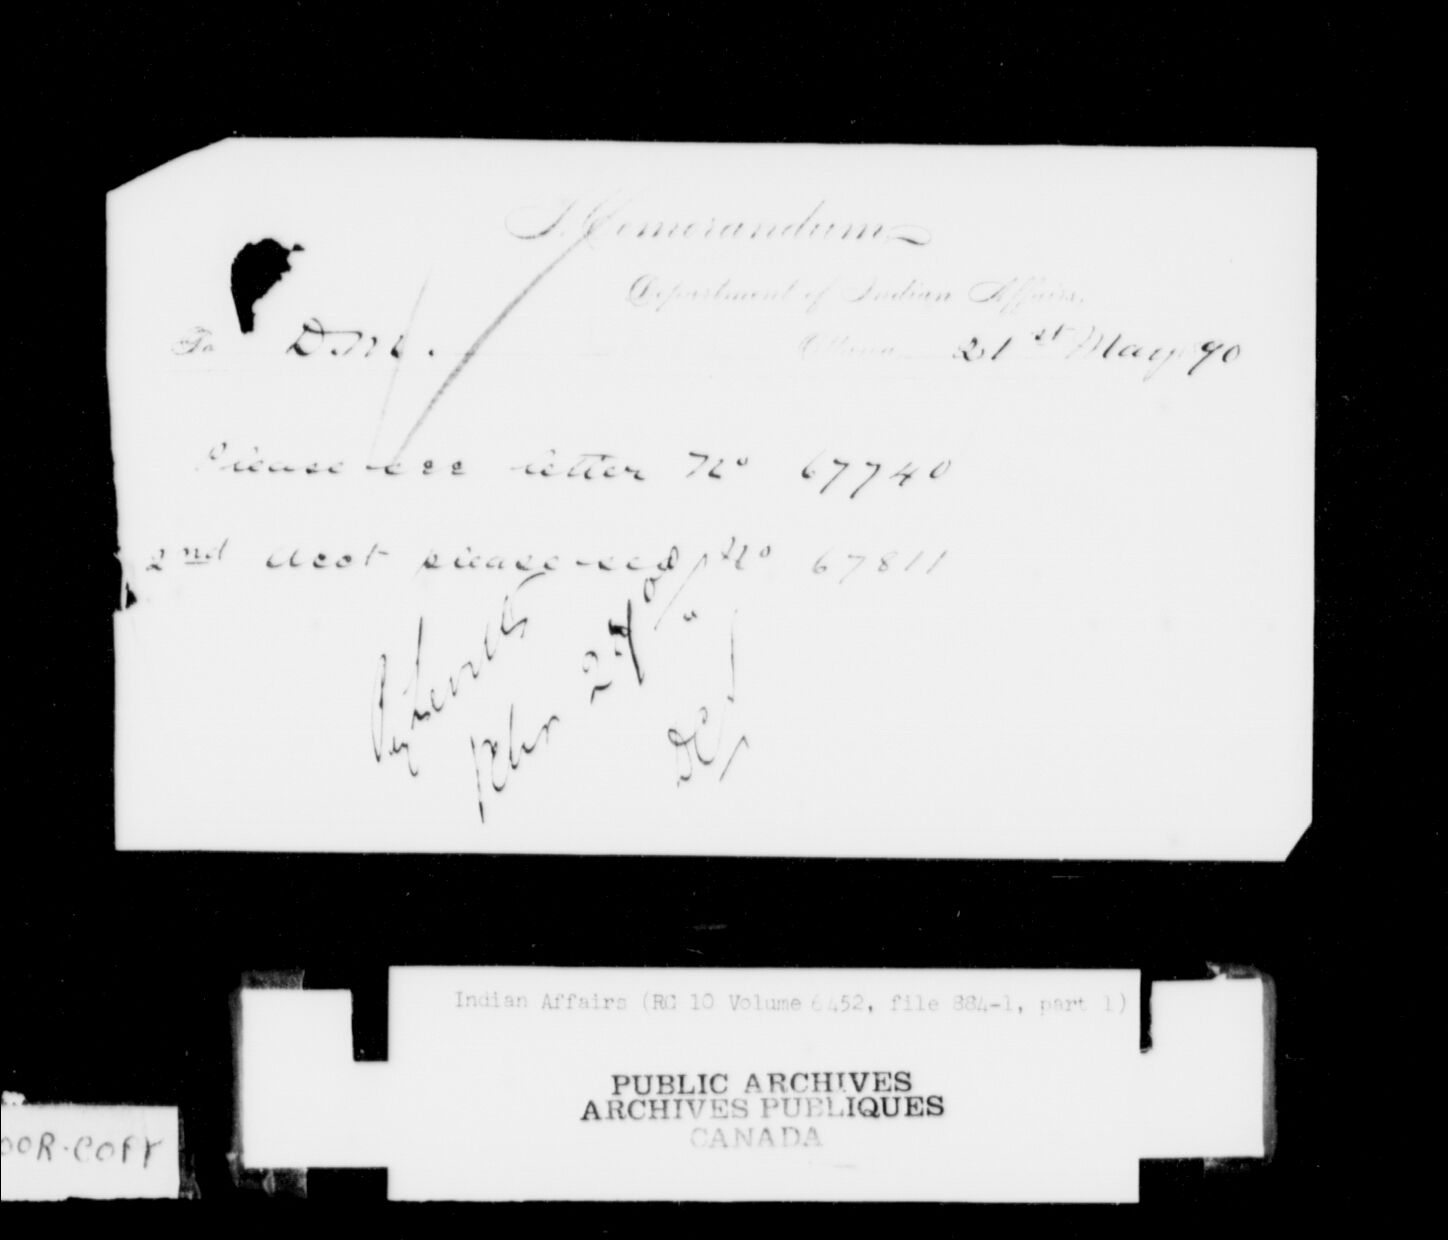 Memorandum
Department of Indian Affairs,
To D.M. Ottawa, 21st May 90
Please see letter No 67740
2nd Acct please see No 67811
Indian Affairs (RG 10 Volume 6452, file 884-1, part 1)
PUBLIC ARCHIVES
ARCHIVES PUBLIQUES
CANADA
OOR-COPY